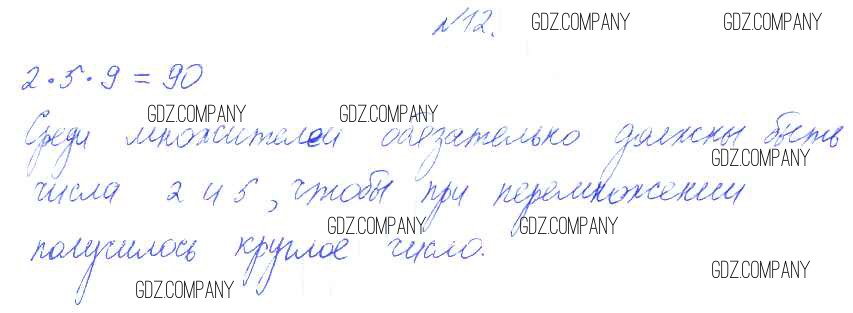 №12. GDZ.COMPANY GDZ.COMPANY
2·5·9=90
GDZ.COMPANY GDZ.COMPANY
Среди множителей обязательно должны быть
GDZ.COMPANY
числа 2 и 5, чтобы при перемножении
GDZ.COMPANY GDZ.COMPANY
получилось круглое число.
GDZ.COMPANY
GDZ.COMPANY